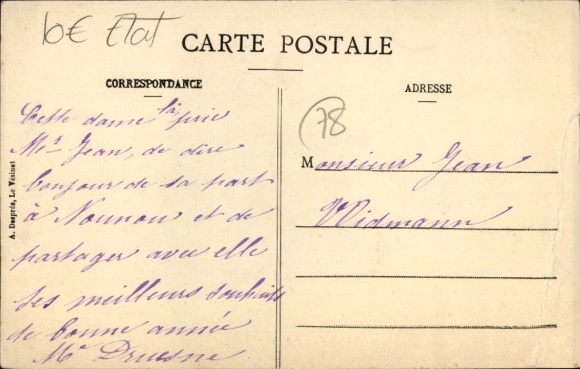 10€ Etat
CARTE POSTALE
CORRESPONDANCE
ADRESSE
Cette dame là prie
Mr Jean, de dire
bonjour de sa part
à Nounou et de
partager avec elle
ses meilleurs souhaits
de bonne année
Me Druesne
A. Desprès, Le Vésinet
78
Monsieur Jean
Widmann